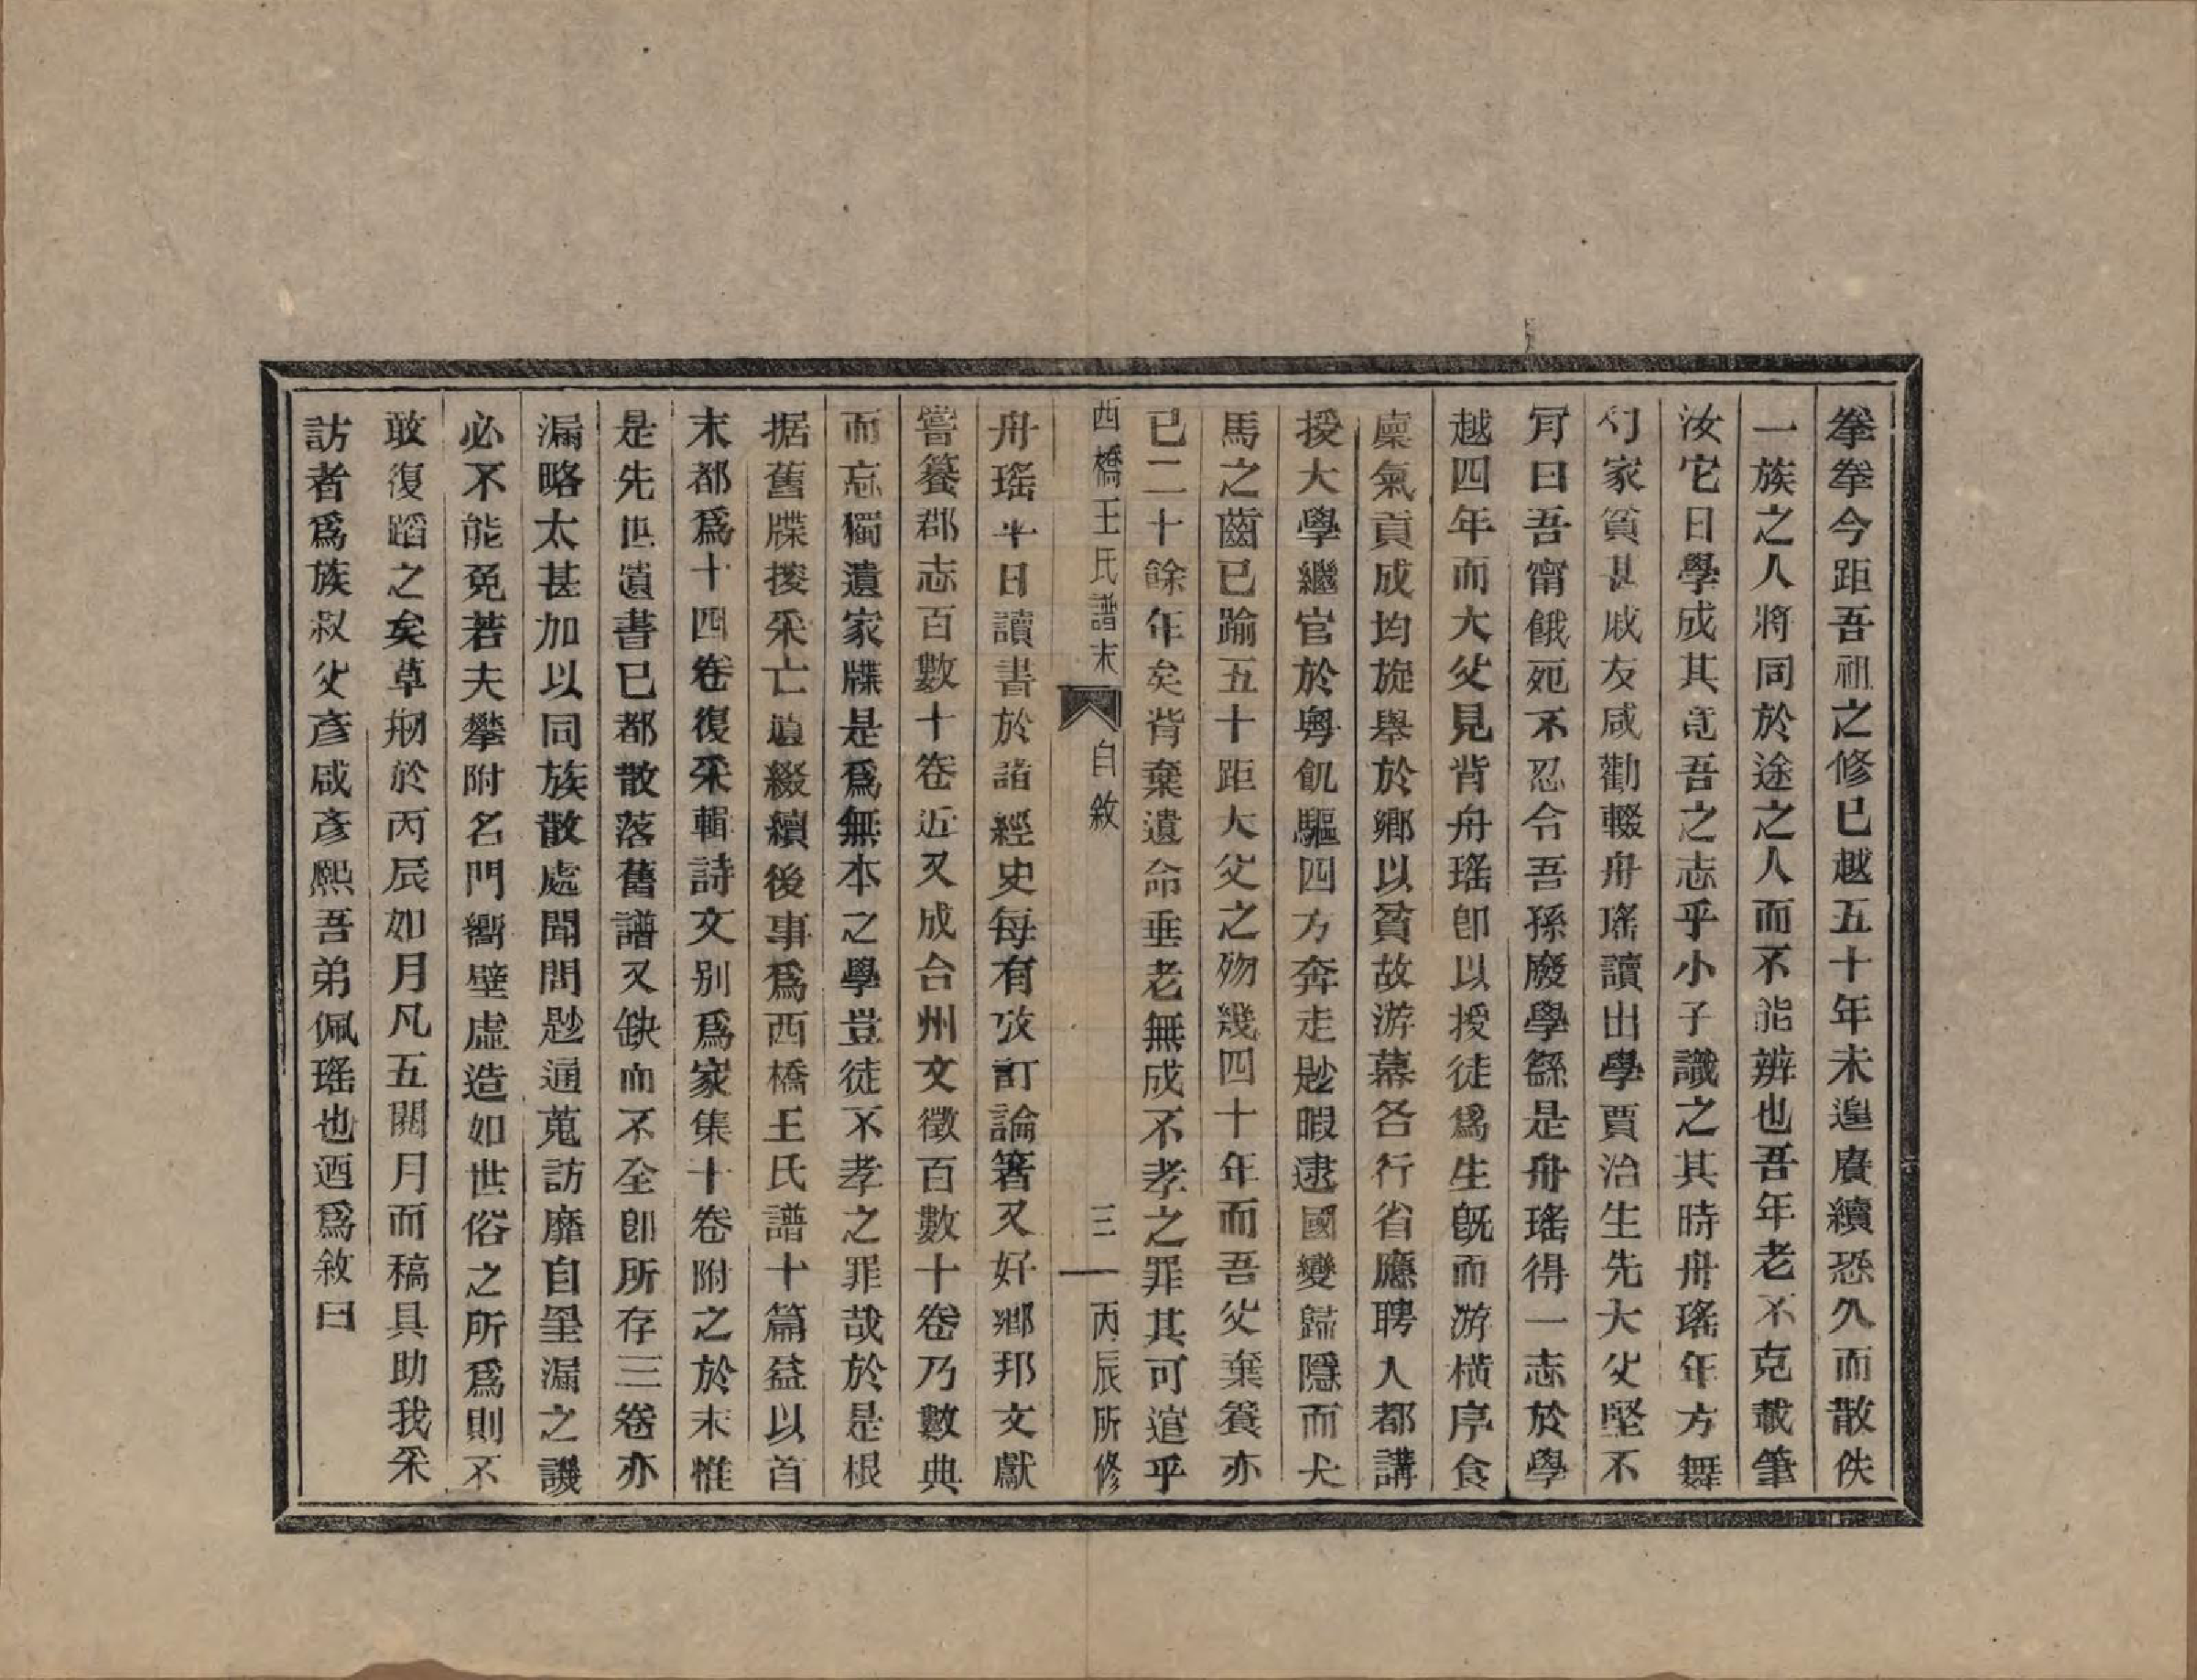 拳拳今距吾祖之修已越五十年未遑賡續恐久而散佚
一族之人將同於途之人而不能辨也吾年老不克載筆
汝它日學成其竟吾之志乎小子識之其時舟瑤年方舞
勺家貧甚戚友咸勸輟舟瑤讀出學賈治生先大父堅不
肎曰吾甯餓死不忍令吾孫廢學繇是舟瑤得一志於學
越四年而大父見背舟瑤卽以授徒爲生旣而游橫序食
廩氣貢成均旋舉於鄉以貧故游幕各行省應聘人都講
授大學繼官於粵飢驅四方奔走尟暇逮國變歸隱而犬
馬之齒已踰五十距大父之歾幾四十年而吾父棄養亦
已二十餘年矣背棄遺命垂老無成不孝之罪其可逭乎
西橋王氏譜末　自敘　三　丙辰所修
舟瑤半日讀書於諸經史每有攷訂論箸又好鄉邦文獻
嘗籑郡志百數十卷近又成台州文徵百數十卷乃數典
而忘獨遺家牒是爲無本之學豈徒不孝之罪哉於是根
据舊牒搜采亡遺綴續後事爲西橋王氏譜十篇益以首
末都爲十四卷復采輯詩文别爲家集十卷附之於末惟
是先世遺書已都散落舊譜又缺而不全卽所存三卷亦
漏略太甚加以同族散處聞問尟通蒐訪靡自罣漏之譏
必不能免若夫攀附名門嚮壁虛造如世俗之所爲則不
敢復蹈之矣草剏於丙辰如月凡五閱月而稿具助我采
訪者爲族叔父彥咸彥熙吾弟佩瑤也迺爲敘曰